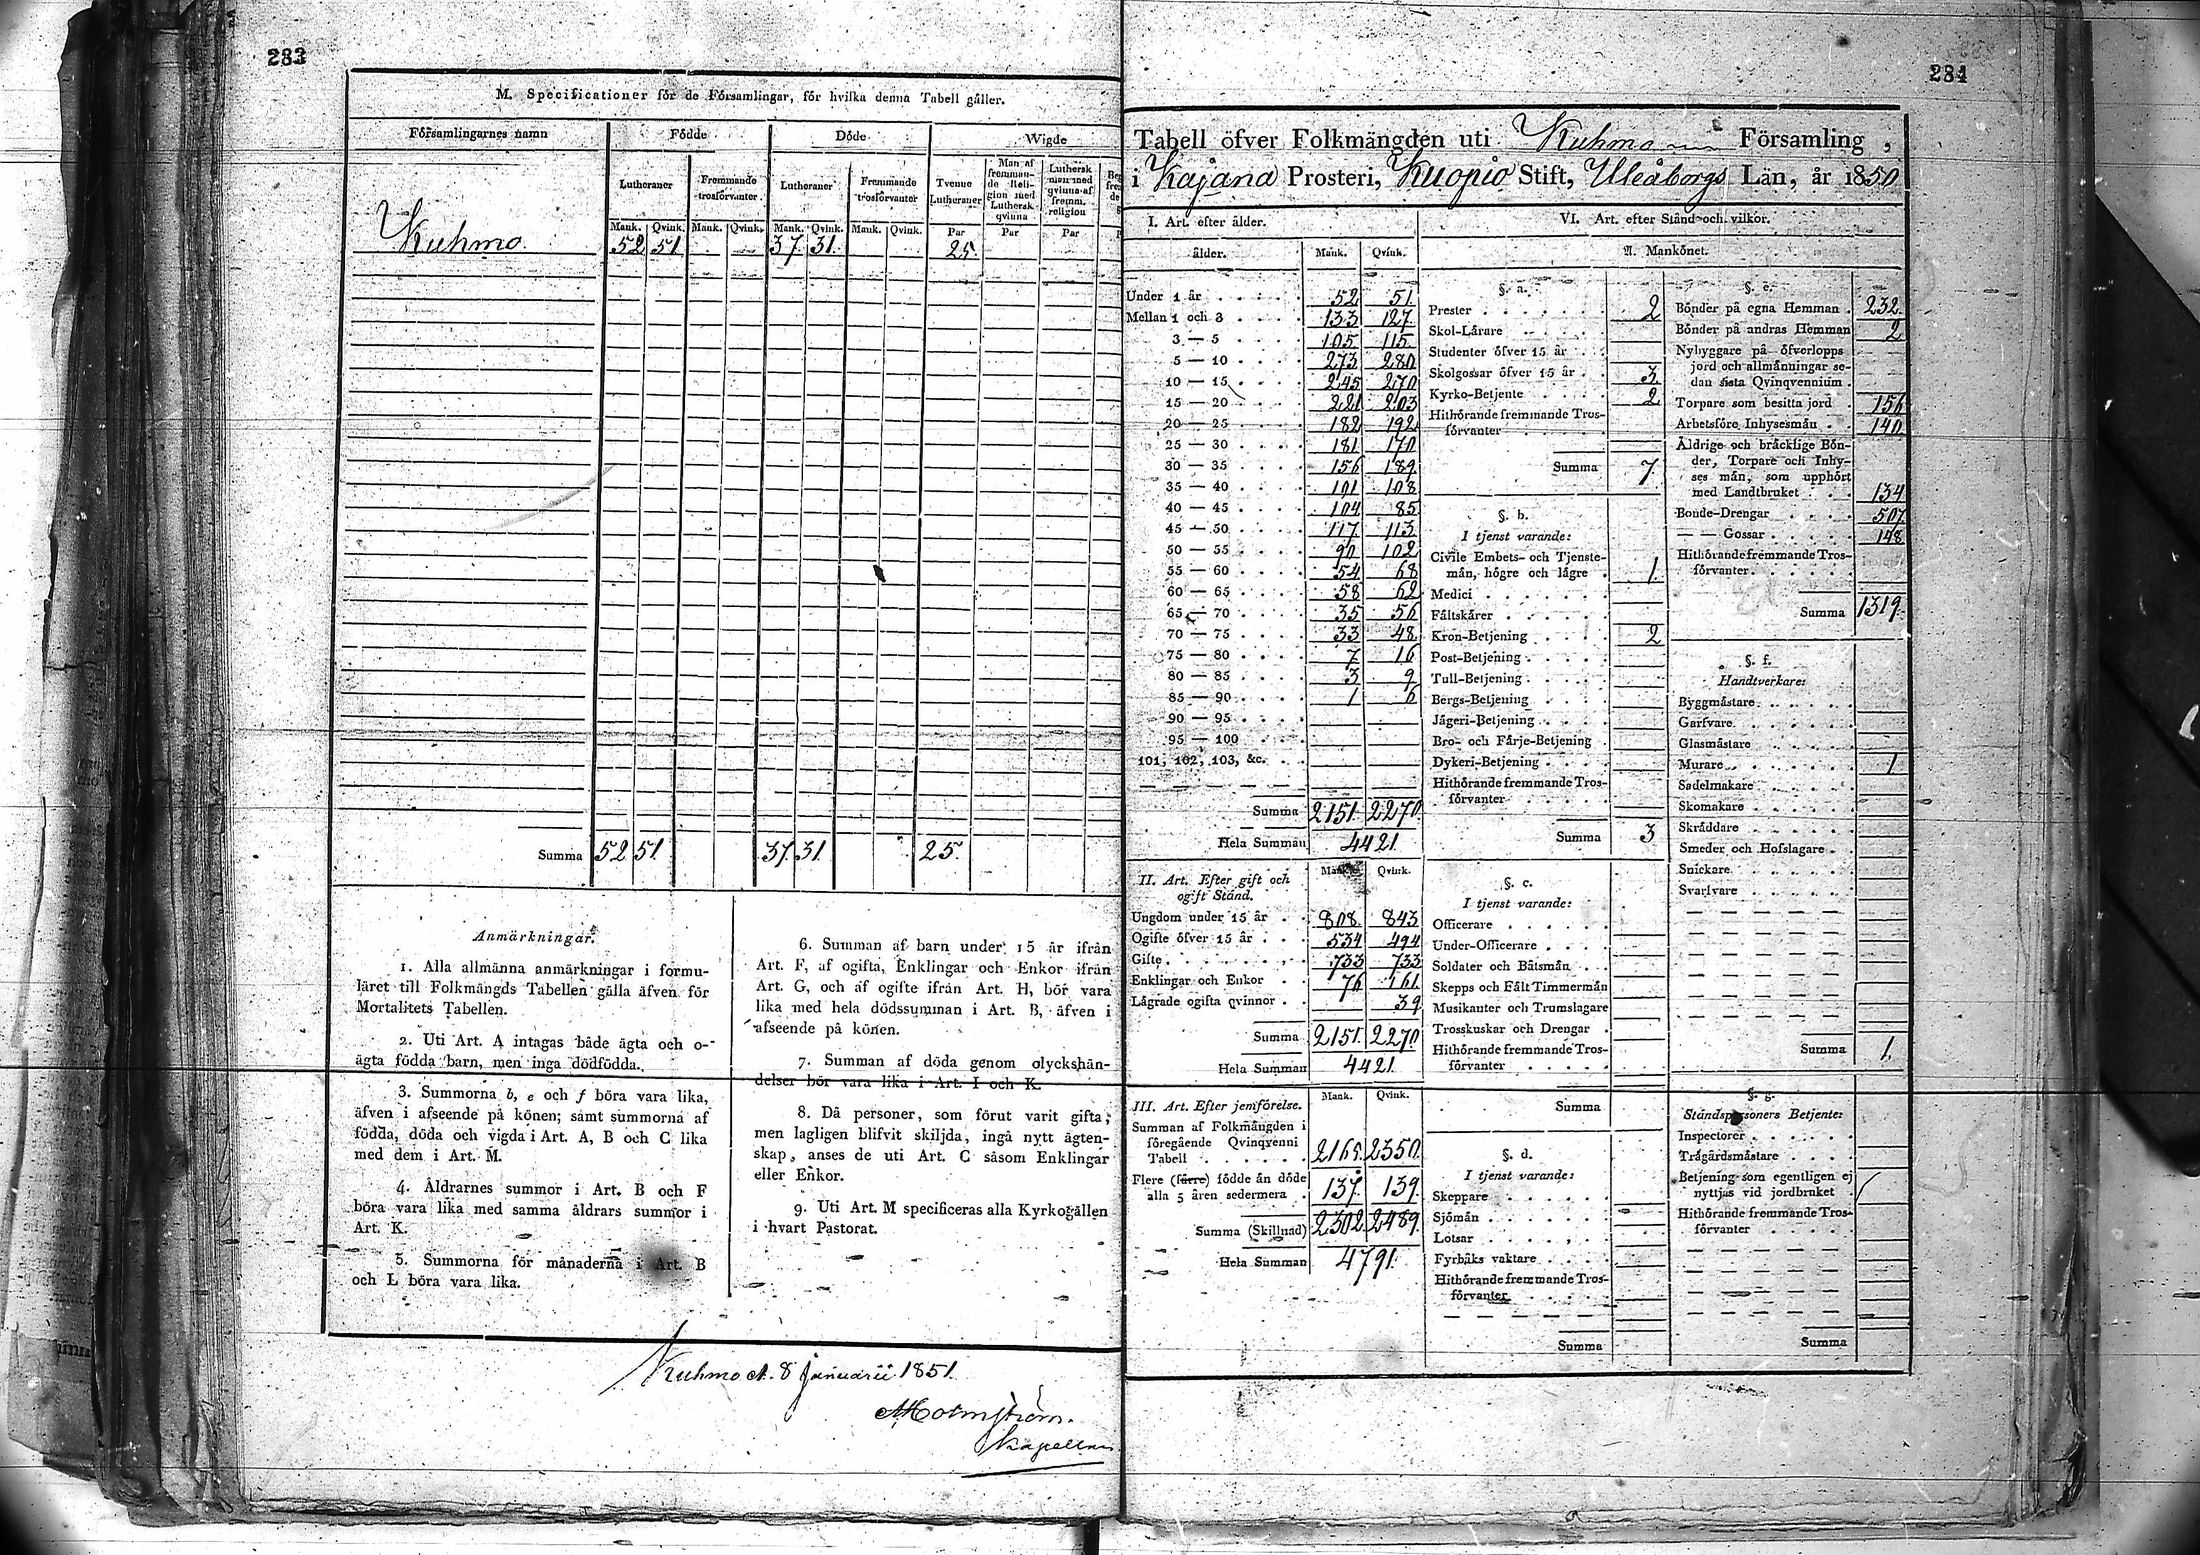 283
M. Specificationer för de Församlingar, för hvilka denna Tabell gäller.
Församlingarnes namn Födde Döde Wigde
Lutheraner Fremmande trosförvanter. Lutheraner Fremmande trosförvanter Tvenne Lutheraner Man af fremmande Religion med Luthersk qvinna Luthersk man med qvinna af fremm. religion
Mank. Qvink. Mank. Qvink. Mank. Qvink. Mank. Qvink. Par Par Par
Kuhmo 52 51 37 31 25
Summa 52 51 37 31 25
Anmärkningar.
1. Alla allmänna anmärkningar i formu-
läret till Folkmängds Tabellen gälla äfven för
Mortalitets Tabellen.
2. Uti Art. A intagas både ägta och o-
ägta födda barn, men inga dödfödda.
3. Summorna b, e och f böra vara lika,
äfven i afseende på könen; samt summorna af
födda, döda och vigda i Art. A, B och C lika
med dem i Art. M.
4. Åldrarnes summor i Art. B och F
böra vara lika med samma åldrars summor i
Art. K.
5. Summorna för månaderna i Art. B
och L böra vara lika.
6. Summan af barn under 15 år ifrån
Art. F, af ogifta, Enklingar och Enkor ifrån
Art. G, och af ogifte ifrån Art. H, bör vara
lika med hela dödssumman i Art. B, äfven i
afseende på könen.
7. Summan af döda genom olyckshän-
delser bör vara lika i Art. I och K.
8. Då personer, som förut varit gifta,
men lagligen blifvit skiljda, ingå nytt ägten-
skap, anses de uti Art. C såsom Enklingar
eller Enkor.
9. Uti Art. M specificeras alla Kyrkogällen
i hvart Pastorat.
Kuhmo d. 8 Januarii 1851.
Holmström.
Kapellan
284
Tabell öfver Folkmängden uti Kuhmo Församling,
i Kajana Prosteri, Kuopio Stift, Uleåborgs Län, år 1850
I. Art. efter ålder.
ålder. Mank. Qvink.
Under 1 år 52 51
Mellan 1 och 3 133 127
3 — 5 105 115
5 — 10 273 280
10 — 15 245 270
15 — 20 221 203
20 — 25 182 192
25 — 30 181 170
30 — 35 156 189
35 — 40 191 108
40 — 45 104 85
45 — 50 117 113
50 — 55 90 102
55 — 60 54 68
60 — 65 58 62
65 — 70 35 56
70 — 75 33 48
75 — 80 7 16
80 — 85 3 9
85 — 90 1 6
90 — 95
95 — 100
101, 102, 103, &c.
Summa 2151 2270
Hela Summan 4421
II. Art. Efter gift och
ogift Stånd. Mank. Qvink.
Ungdom under 15 år 808 843
Ogifte öfver 15 år 534 494
Gifte 733 733
Enklingar och Enkor 76 161
Lägrade ogifta qvinnor 39
Summa 2151 2270
Hela Summan 4421
III. Art. Efter jemförelse. Mank. Qvink.
Summan af Folkmängden i
föregående Qvinqvenni
Tabell 2165 2350
Flere (färre) födde än döde
alla 5 åren sedermera 137 139
Summa (Skillnad) 2302 2489
Hela Summan 4791
VI. Art. efter Stånd och vilkor.
A. Mankönet.
§. a.
Prester 2
Skol-Lärare
Studenter öfver 15 år
Skolgossar öfver 15 år 3
Kyrko-Betjente 2
Hithörande fremmande Tros-
förvanter
Summa 7
§. b.
I tjenst varande:
Civile Embets- och Tjenste-
män, högre och lägre 1
Medici
Fältskärer
Kron-Betjening 2
Post-Betjening
Tull-Betjening
Bergs-Betjening
Jägeri-Betjening
Bro- och Färje-Betjening
Dykeri-Betjening
Hithörande fremmande Tros-
förvanter
Summa 3
§. c.
I tjenst varande:
Officerare
Under-Officerare
Soldater och Båtsmän
Skepps och Fält Timmermän
Musikanter och Trumslagare
Trosskuskar och Drengar
Hithörande fremmande Tros-
förvanter
Summa
§. d.
I tjenst varande:
Skeppare
Sjömän
Lotsar
Fyrbåks vaktare
Hithörande fremmande Tros-
förvanter
Summa
§. e.
Bönder på egna Hemman 232
Bönder på andras Hemman 2
Nybyggare på öfverlopps
jord och allmänningar se-
dan sista Qvinqvennium
Torpare som besitta jord 156
Arbetsföre Inhysesmän 140
Åldrige och bräcklige Bön-
der, Torpare och Inhy-
ses män, som upphört
med Landtbruket 134
Bonde-Drengar 507
— — Gossar 148
Hithörande fremmande Tros-
förvanter
Summa 1319
§. f.
Handtverkare:
Byggmästare
Garfvare
Glasmästare
Murare 1
Sadelmakare
Skomakare
Skräddare
Smeder och Hofslagare
Snickare
Svarfvare
Summa 1
§. g.
Ståndspersoners Betjente:
Inspectorer
Trägårdsmästare
Betjening som egentligen ej
nyttjas vid jordbruket
Hithörande fremmande Tros-
förvanter
Summa